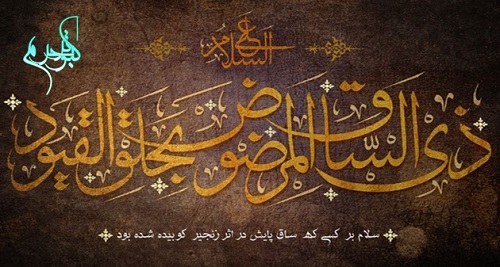 کبوتر حرم
علیه السلام
ذی السّاق المرضوض بحلق القیود
سلام بر کسی که ساق پایش در اثر زنجیر کوبیده شده بود